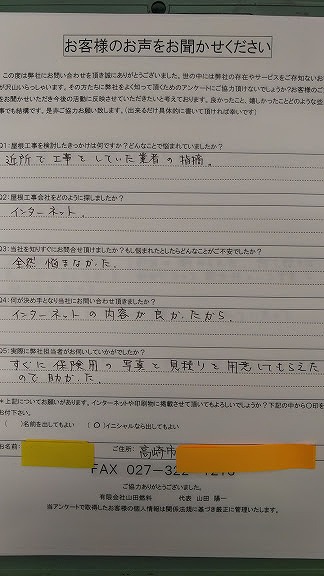 お客様のお声をお聞かせください
この度は弊社にお問い合わせを頂き誠にありがとうございました。世の中には弊社の存在やサービスをご存知ないお
が沢山いらっしゃいます。その方たちに弊社をよく知って頂くためのアンケートにご協力頂けないでしょうか?お客様のご
をお聞かせいただき今後の活動に反映させていただきたいと考えております。良かったこと、嬉しかったことどのような些
事でも結構です。是非ご協力お願い致します。(出来るだけ具体的に書いて頂ければ幸いです)
Q1:屋根工事を検討したきっかけは何ですか?どんなことで悩まれていましたか?
近所で工事をしていた業者の指摘。
Q2:屋根工事会社をどのように探しましたか?
インターネット。
Q3:当社を知りすぐにお問合せ頂けましたか?もし悩まれたとしたらどんなことがご不安でしたか?
全然悩まなかった。
Q4:何が決め手となり当社にお問い合わせ頂きましたか?
インターネットの内容が良かったから。
Q5:実際に弊社担当者がお伺いしていかがでしたか?
すぐに保険用の写真と見積りを用意してもらえた
ので助かった。
*上記についてお願いがあります。インターネットや印刷物に掲載させて頂いてもよろしいでしょうか?下記の中から○印を
お付下さい。
( )名前を出してもよい ( ○ )イニシャルなら出してもよい
お名前: ご住所: 高崎市
FAX 027-322
ご協力ありがとうございました。
有限会社山田燃料 代表 山田 陽一
当アンケートで取得したお客様の個人情報は関係法規に基づき厳正に管理いたします。